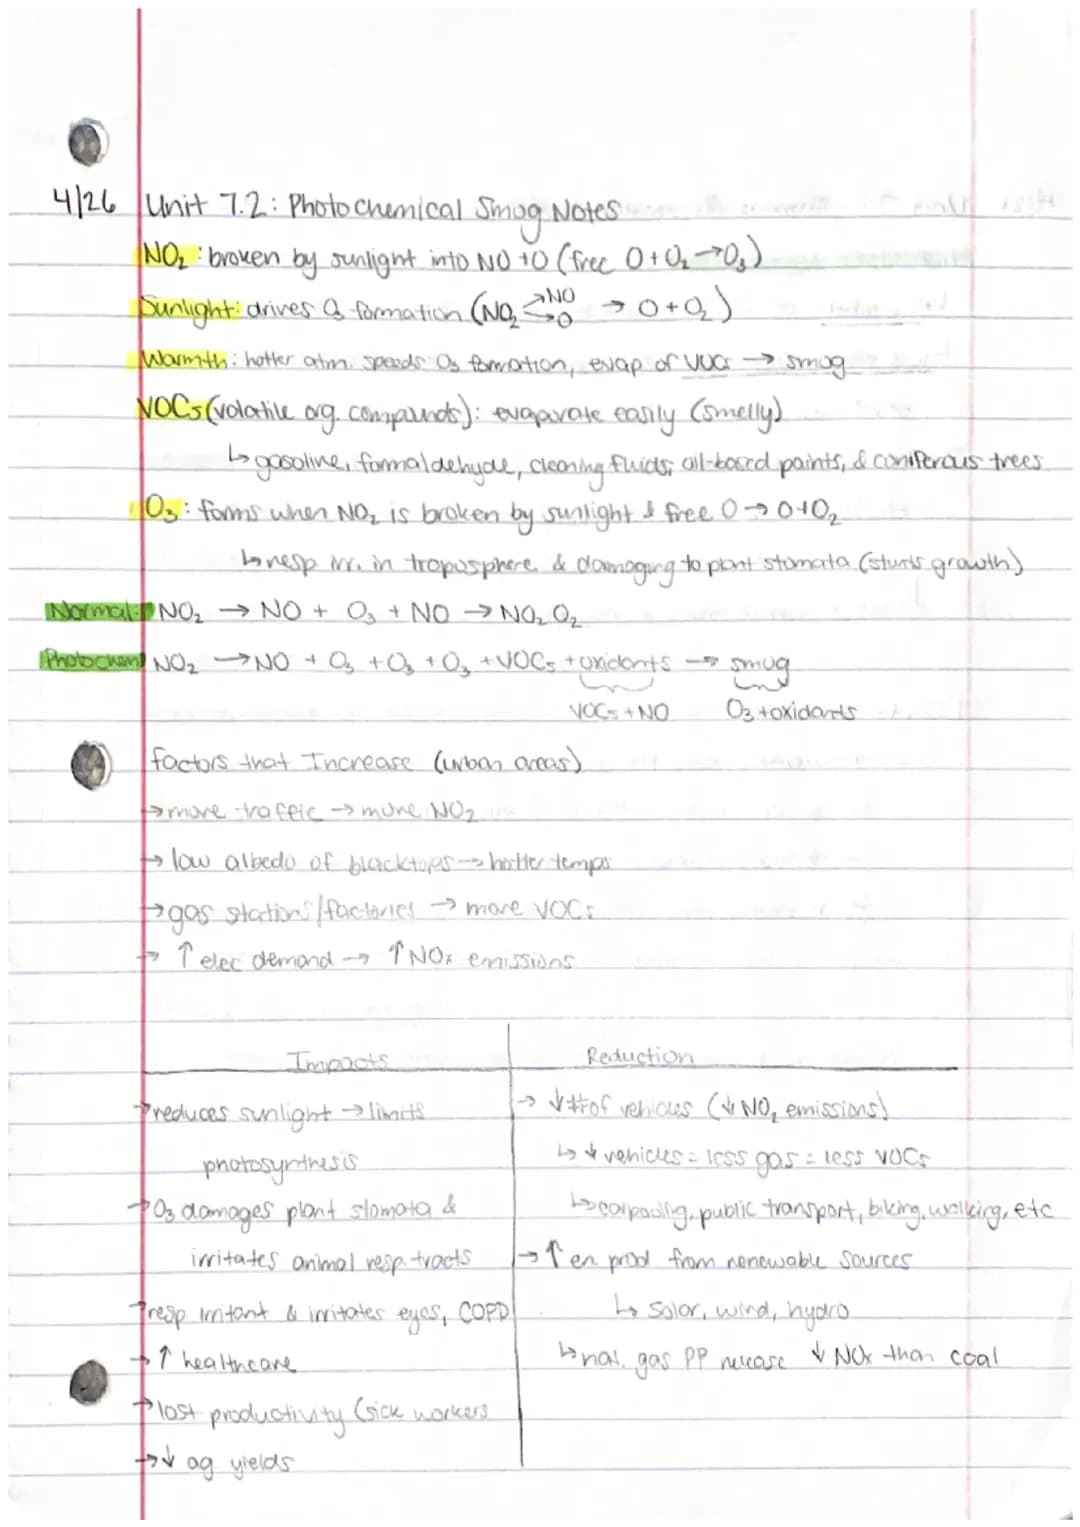 4/26 Unit 7.2: Photochemical Smog Notes
NO₂: broken by sunlight into NO + O (free O + O₂ → O₃)
Sunlight: drives O₃ formation (NO₂ → NO → O → O + O₂)
Warmth: hotter atm. speeds O₃ formation, evap of VOCs → smog
VOCs (volatile org. compounds): evaporate easily (smelly)
↳ gasoline, formaldehyde, cleaning fluids, oil-based paints, & coniferous trees
O₃: forms when NO₂ is broken by sunlight & free O → O + O₂
↳ resp irr. in troposphere & damaging to plant stomata (stunts growth)
Normal: NO₂ → NO + O₃ + NO → NO₂ O₂
Photochem NO₂ → NO + O₃ + O₃ + O₃ + VOCs + oxidants → smog
VOCs + NO O₃ + oxidants
factors that Increase (urban areas)
→ more traffic → more NO₂
→ low albedo of blacktops → hotter temps
→ gas stations/factories → more VOCs
→ ↑ elec demand → ↑ NOx emissions
Impacts
→ reduces sunlight → limits
photosynthesis
→ O₃ damages plant stomata &
irritates animal resp. tracts
→ resp irritant & irritates eyes, COPD
→ ↑ healthcare
→ lost productivity (sick workers
→ ↓ ag yields
Reduction
→ ↓ # of vehicles (↓ NO₂ emissions)
↳ ↓ vehicles = less gas = less VOCs
↳ carpooling, public transport, biking, walking, etc
→ ↑ en. prod from renewable sources
↳ solar, wind, hydro
↳ nat. gas PP release ↓ NOx than coal